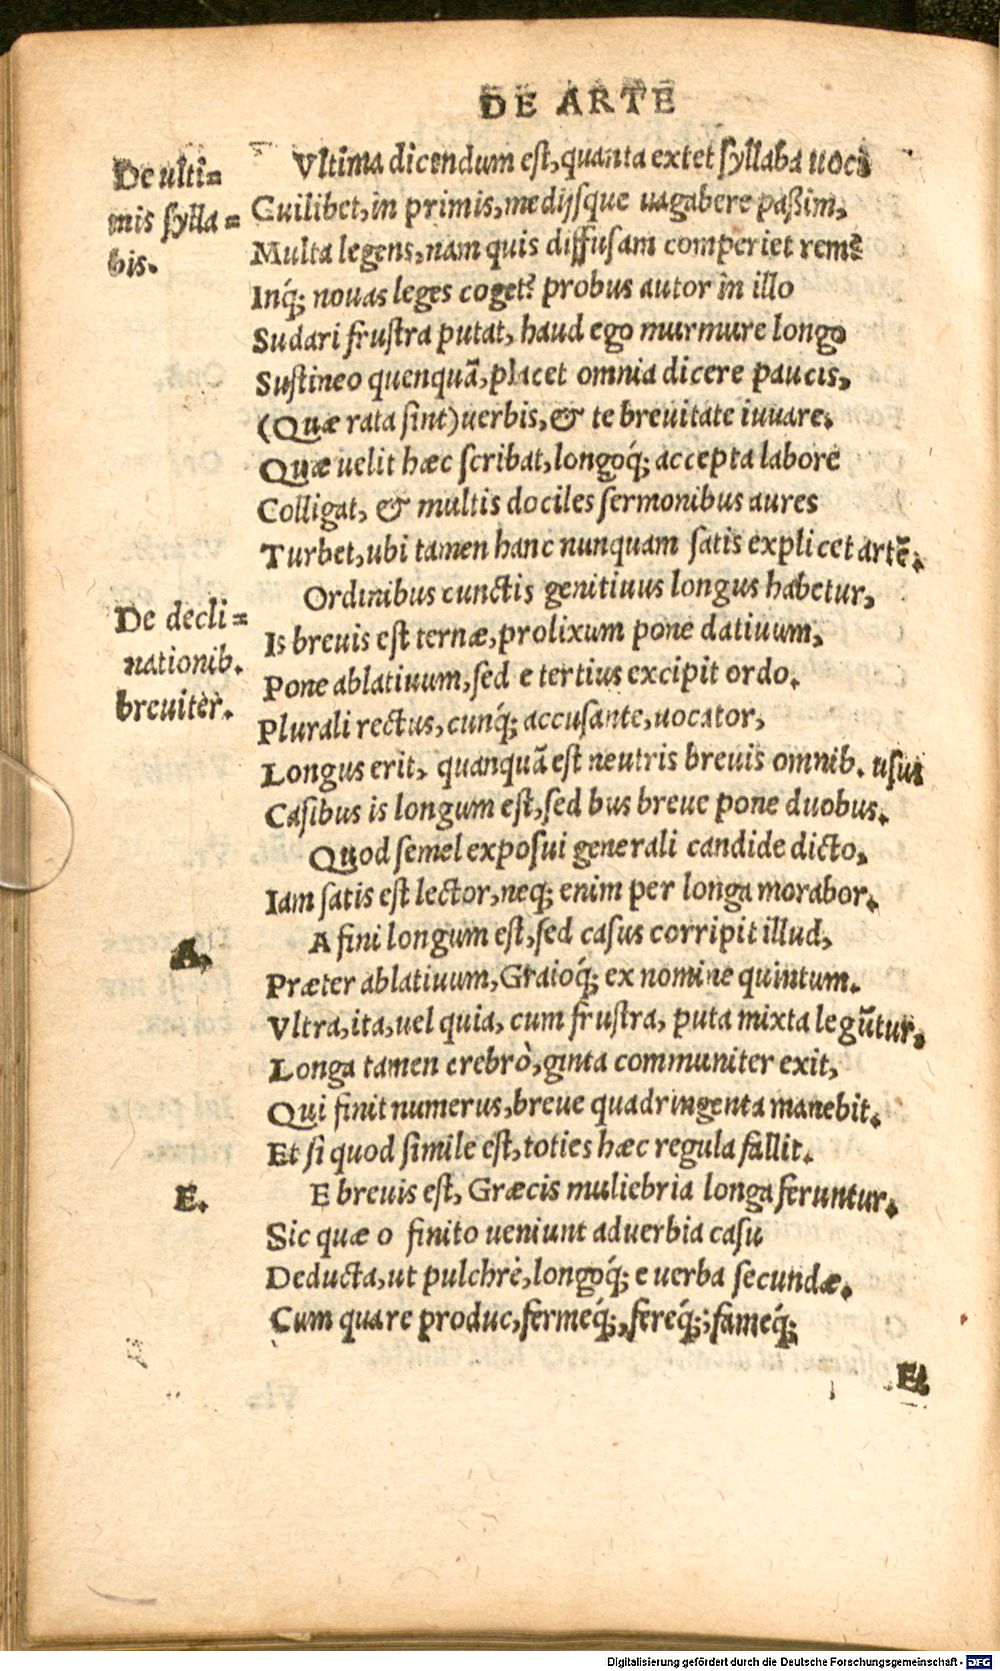 DE ARTE
De ulti=
mis sylla=
bis.
Vltima dicendum est, quanta extet syllaba uoci
Cuilibet, in primis, medijsque uagabere paßim,
Multa legens, nam quis diffusam comperiet rem?
Inq́; nouas leges coget? probus autor in illo
Sudari frustra putat, haud ego murmure longo
Sustineo quenquã, placet omnia dicere paucis,
(Quæ rata sint) uerbis, & te breuitate iuuare.
Quæ uelit hæc scribat, longoq́; accepta labore
Colligat, & multis dociles sermonibus aures
Turbet, ubi tamen hanc nunquam satis explicet artẽ.
De decli=
nationib.
breuiter.
Ordinibus cunctis genitiuus longus habetur,
Is breuis est ternæ, prolixum pone datiuum,
Pone ablatiuum, sed e tertius excipit ordo.
Plurali rectus, cunq́; accusante, uocator,
Longus erit, quanquã est neutris breuis omnib. usus
Casibus is longum est, sed bus breue pone duobus.
Quod semel exposui generali candide dicto,
Iam satis est lector, neq; enim per longa morabor.
A.
A fini longum est, sed casus corripit illud,
Præter ablatiuum, Graioq́; ex nomine quintum.
Vltra, ita, uel quia, cum frustra, puta mixta legũtur,
Longa tamen crebrò, ginta communiter exit,
Qui finit numerus, breue quadringenta manebit.
Et si quod simile est, toties hæc regula fallit.
E.
E breuis est, Græcis muliebria longa feruntur.
Sic quæ o finito ueniunt aduerbia casu
Deducta, ut pulchrè, longoq́; e uerba secundæ.
Cum quare produc, fermeq́;, fereq́;, fameq́;
E
Digitalisierung gefördert durch die Deutsche Forschungsgemeinschaft - DFG